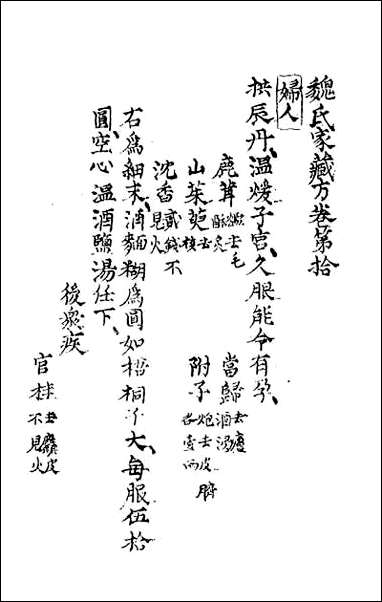 魏氏家藏方卷第拾
婦人
拱辰丹、温煖子宫、久服能令有孕、
鹿茸 去毛 酥炙
當歸 去蘆 酒浸
山茱萸 去核
附子 炮去皮臍 各壹兩
沈香 貳錢不見火
官桂 去麄皮 不見火
右為細末、酒麵糊為圓如梧桐子大、每服伍拾
圓、空心温酒鹽湯任下、
後眾疾